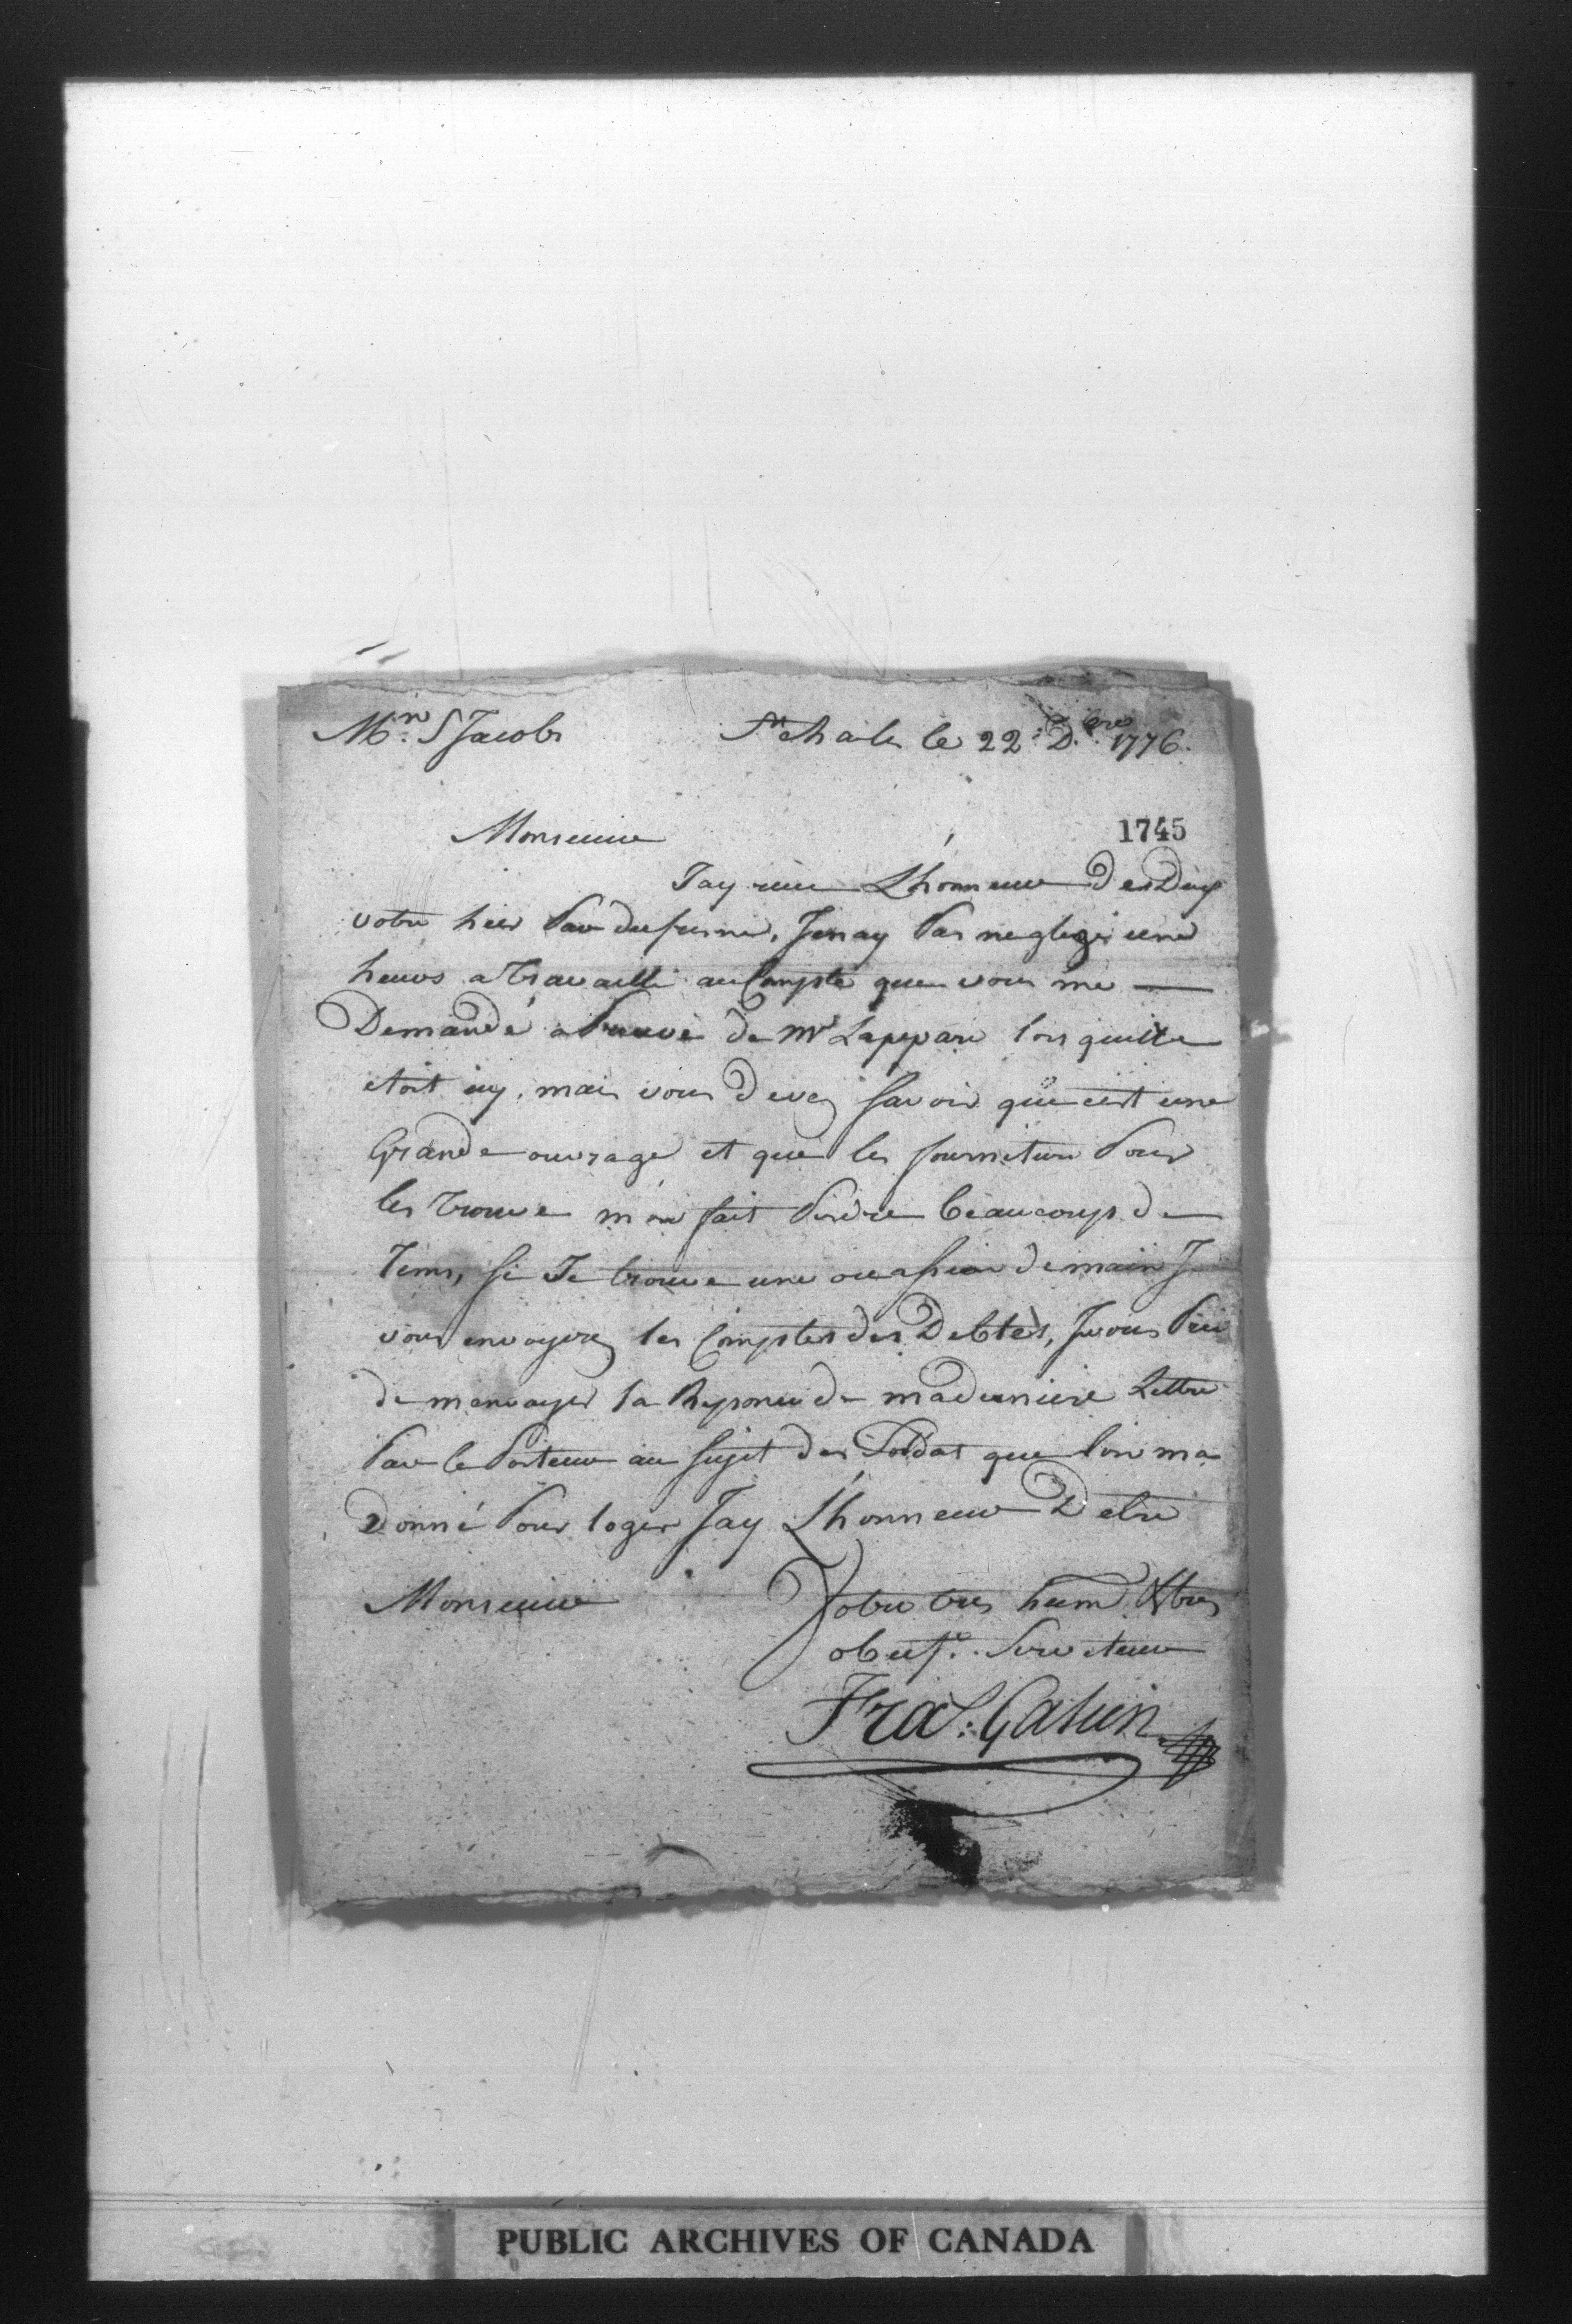 Mr. S Jacobs St Charles le 22 D.bre 1776.
Monsieur
1745
Jay reçu Lhonneur des Deux
votre hier Par dufresne, Jenay Pas neglegé une
heure a travaillé au Compte que vous me —
Demandé a Preuve de Mr Lappare lors quille
etoit icy, mais vous devez savoir que cest une
Grande ouvrage et que les fourniture Pour
les trouve mon fait Perdre beaucoups de
Tems, si Je trouve une ocassion demain J
vous envoyerez les Comptes des Debtes, Je vous Prie
de menvoyer la Reponce de maderniere Lettre
Par le Porteur au sujet des Soldat que lon ma
Donné Pour loger Jay Lhonneur Detre
Monsieur Votre tres hum & tres
obeist. Serviteur
Fras: Gatien
PUBLIC ARCHIVES OF CANADA